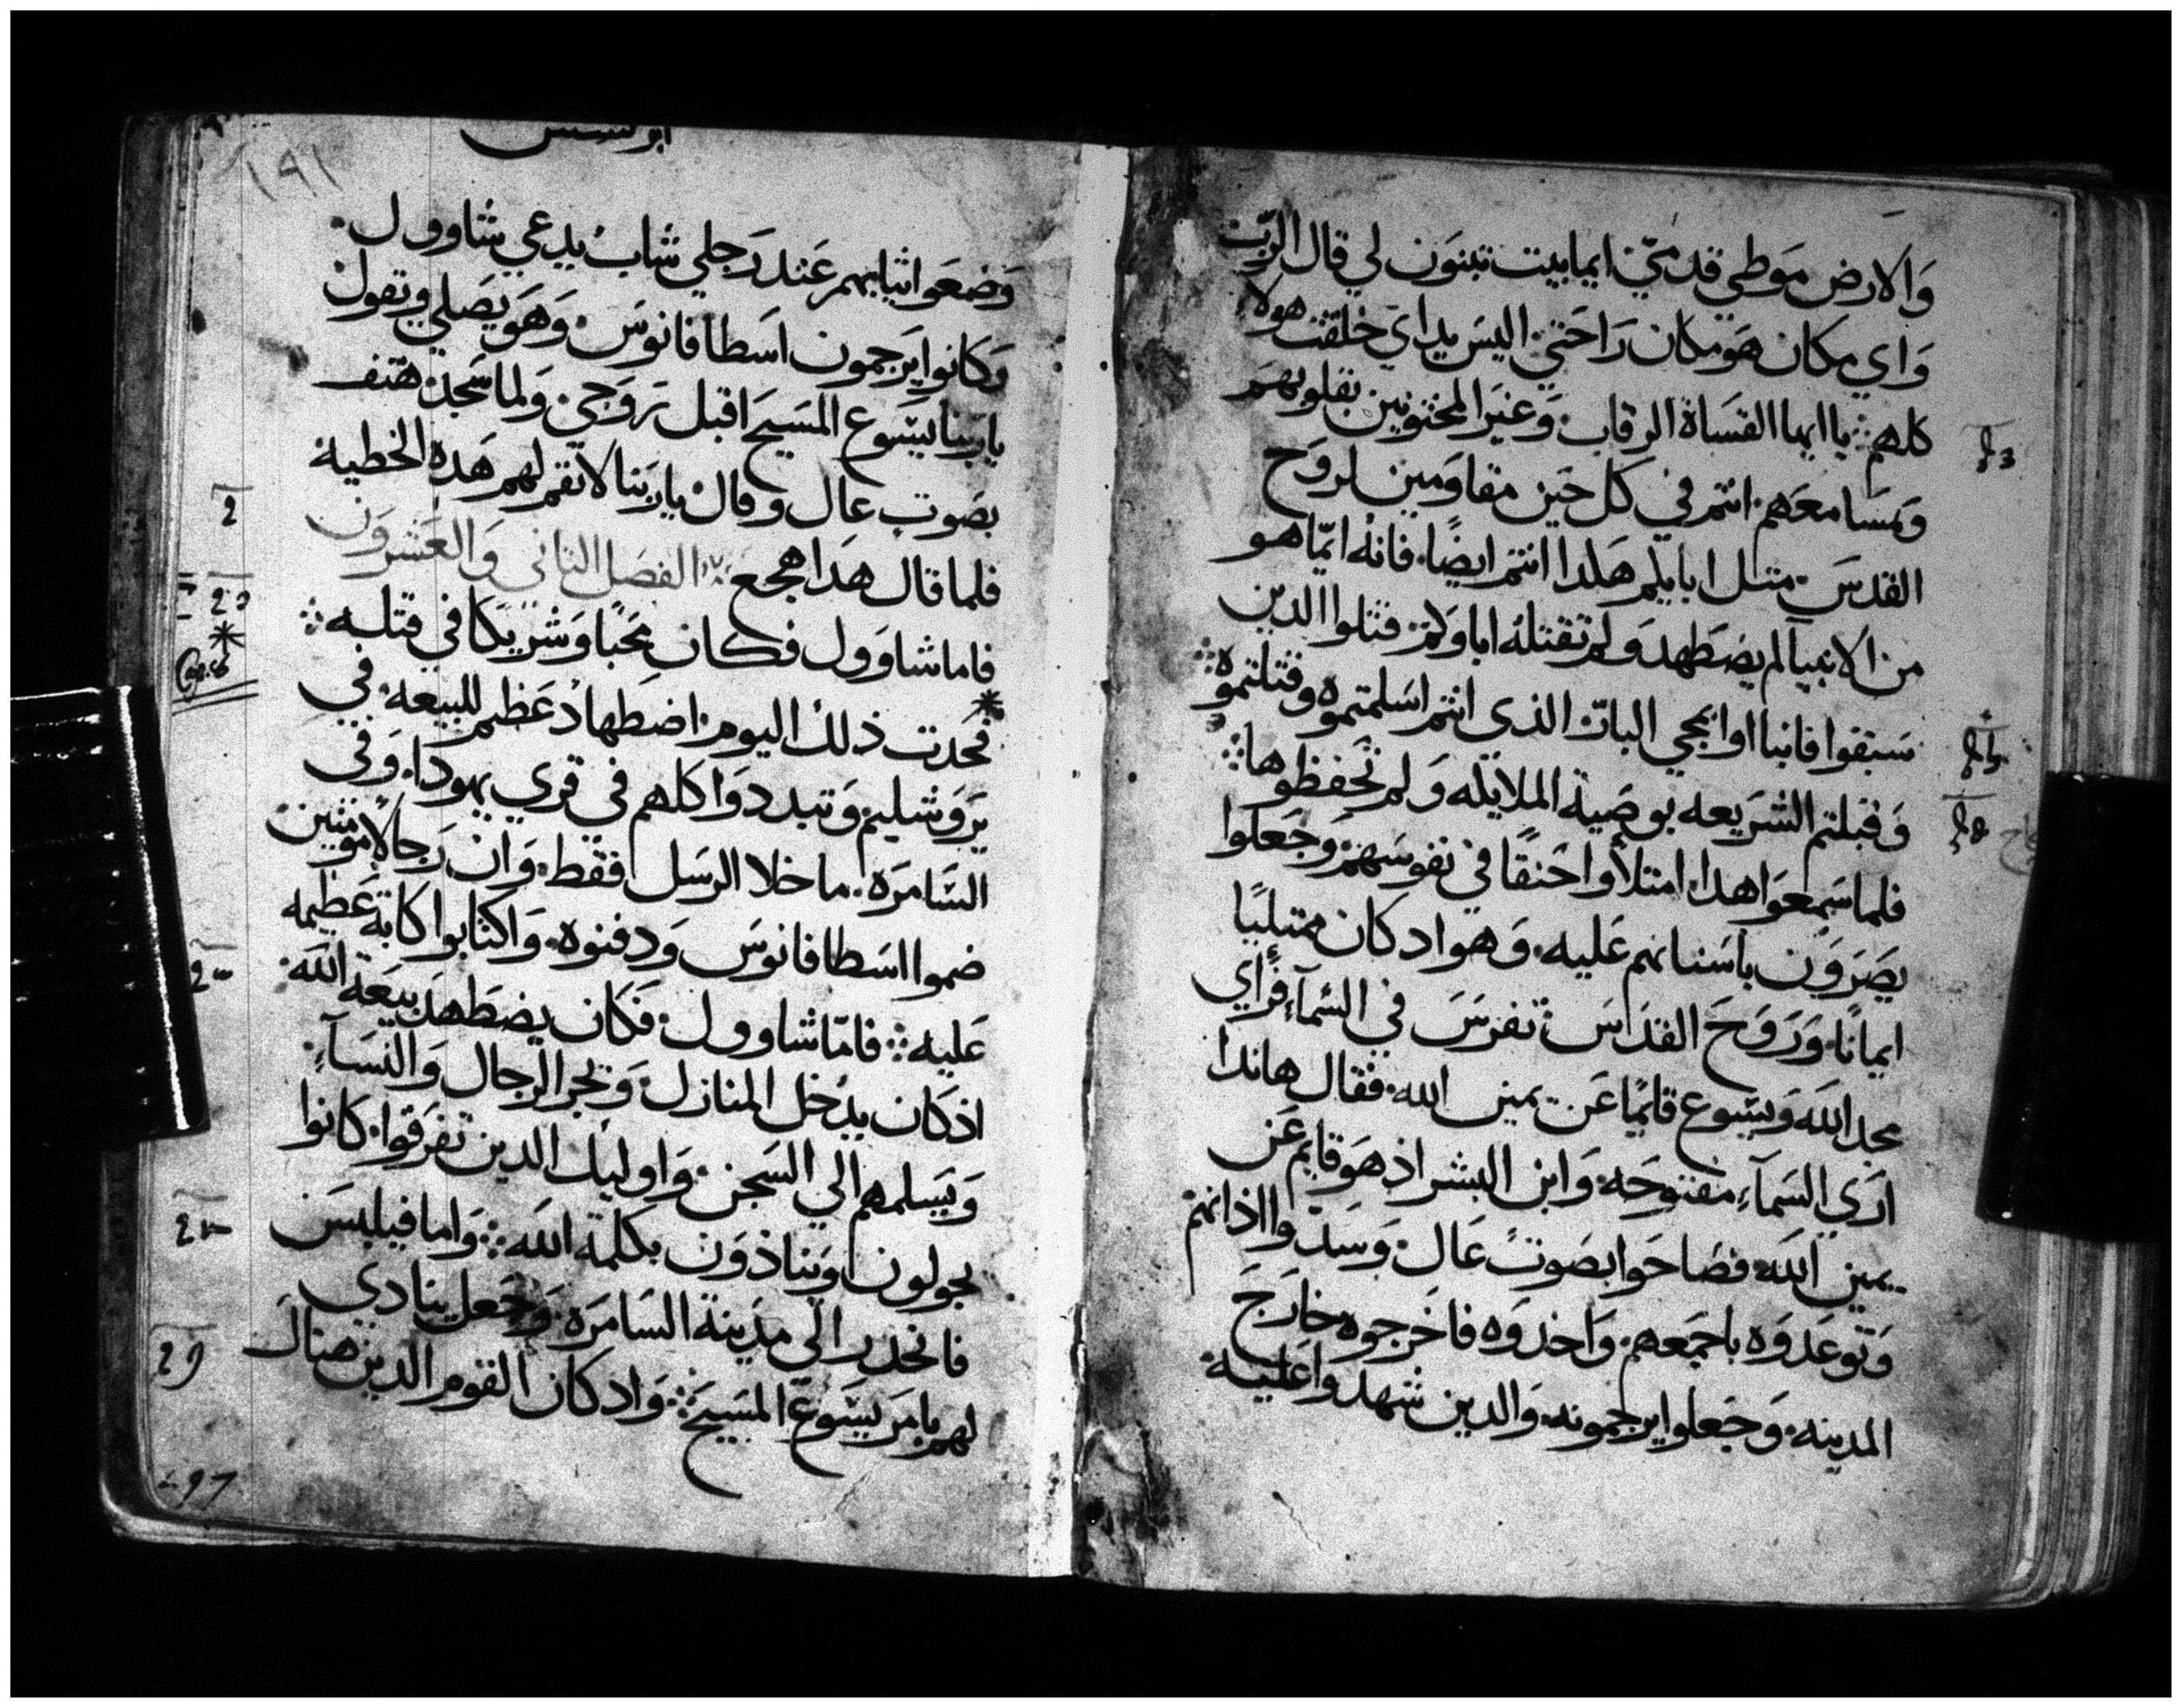 والارض موطي قدمي ايما بيت تبنون لي قال الرب
واي مكان هو مكان راحتي اليس يداي خلقت هولاء
كلهم ܀ يا ايها القساة الرقاب وغير المختونين بقلوبهم
ومسامعهم انتم في كل حين مقاومين لروح
القدس متل ابايكم هكدا انتم ايضًا فانه ايّما هو
من الانبيا لم يضطهد ولم تقتله اباوكم قتلوا الدين
سبقوا فانباوا بمجي البات الذي انتم اسلمتموه وقتلتموه
وقبلتم الشريعه بوصية الملايكه ولم تحفظوها
فلما سمعوا هدا امتلاوا حنقًا في نفوسهم وجعلوا
يصرون باسنانهم عليه وهو اد كان ممتليًا
ايمانًا وروح القدس تفرس في السمآء فراي
مجد الله ويسوع قايمًا عن يمين الله فقال هاندا
اري السمآء مفتوحه وابن البشر اذ هو قايم عن
يمين الله فصاحوا بصوت عال وسدوا اذانهم
وتوعدوه باجمعهم واخدوه فاخرجوه خارج
المدينه وجعلوا يرجمونه والدين شهدوا عليه
ابركسيس
١٩١
وضعوا ثيابهم عند رجلي شاب يدعي شاوول
وكانوا يرجمون اسطافانوس وهو يصلي ويقول
يا ربنا يسوع المسيح اقبل روحي ولما سجد هتف
بصوت عال وقال يا ربنا لا تقم لهم هده الخطيه
فلما قال هدا هجع ܀ الفصل الثاني والعشرون
فاما شاوول فكان محبًا وشريكًا في قتله ܀
فحدت ذلك اليوم اضطهاد عظيم للبيعه في
يروشليم وتبددوا كلهم في قري يهودا وفي
السامره ما خلا الرسل فقط وان رجالا مومنين
ضموا اسطافانوس ودفنوه واكتابوا كابة عظيمه
عليه ܀ فامّا شاوول فكان يضطهد بيعة الله
اذ كان يدخل المنازل ويجر الرجال والنسآء
ويسلمهم الي السجن واوليك الدين تفرقوا كانوا
يجولون ويناذون بكلمة الله ܀ واما فيلبس
فانحدر الي مدينة السامره وجعل ينادي
لهم بامر يسوع المسيح ܀ واد كان القوم الدين هناك